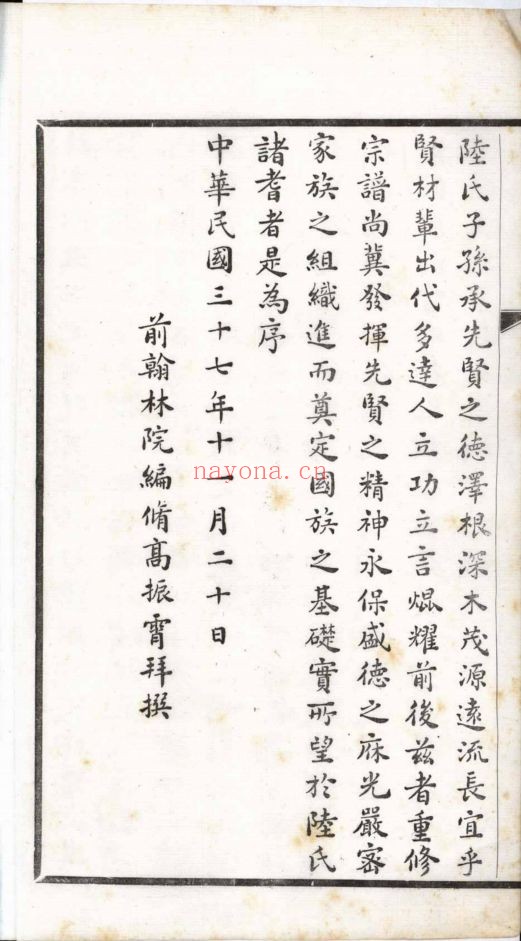 陸氏子孫承先賢之德澤根深木茂源遠流長宜乎
賢材輩出代多達人立功立言焜耀前後兹者重修
宗譜尚冀發揮先賢之精神永保盛德之庥光嚴密
家族之組織進而奠定國族之基礎實所望於陸氏
諸耆者是為序
中華民國三十七年十一月二十日
前翰林院編脩高振霄拜撰
nayona.cn